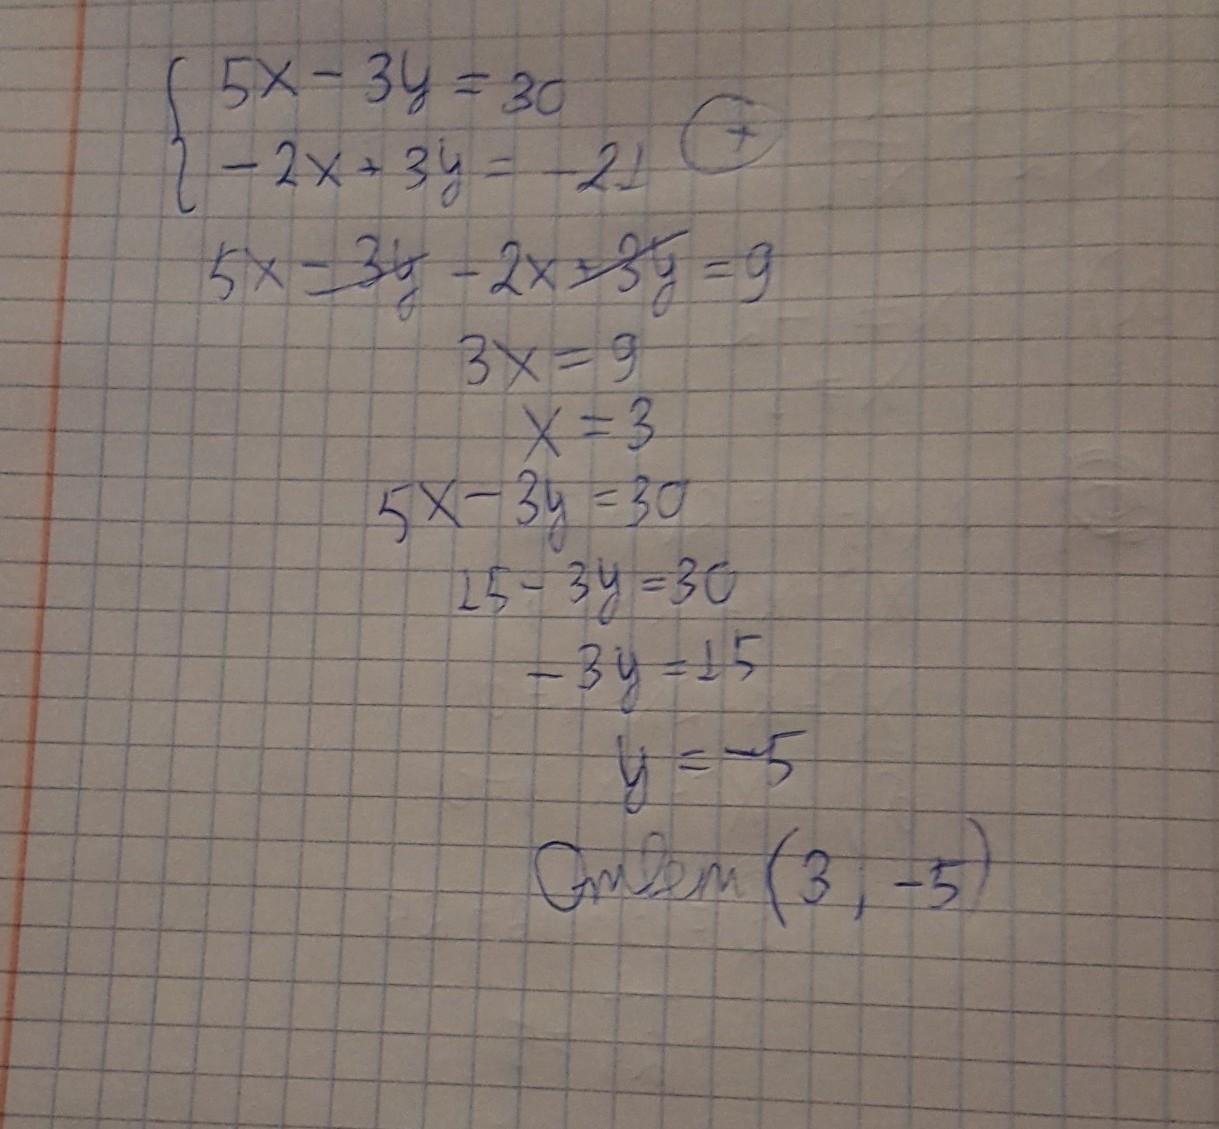 5x - 3y = 30
-2x + 3y = -21 +
5x - 3y - 2x + 3y = 9
3x = 9
x = 3
5x - 3y = 30
15 - 3y = 30
-3y = 15
y = -5
Ответ (3; -5)